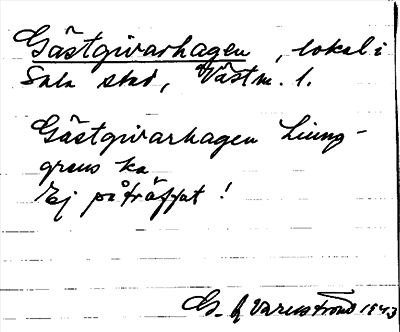 Gästgivarhagen, lokal i
Sala stad, Västm. l.
Gästgivarhagen Ljung-
grens ka
Ej påträffat!
G. A. 1943